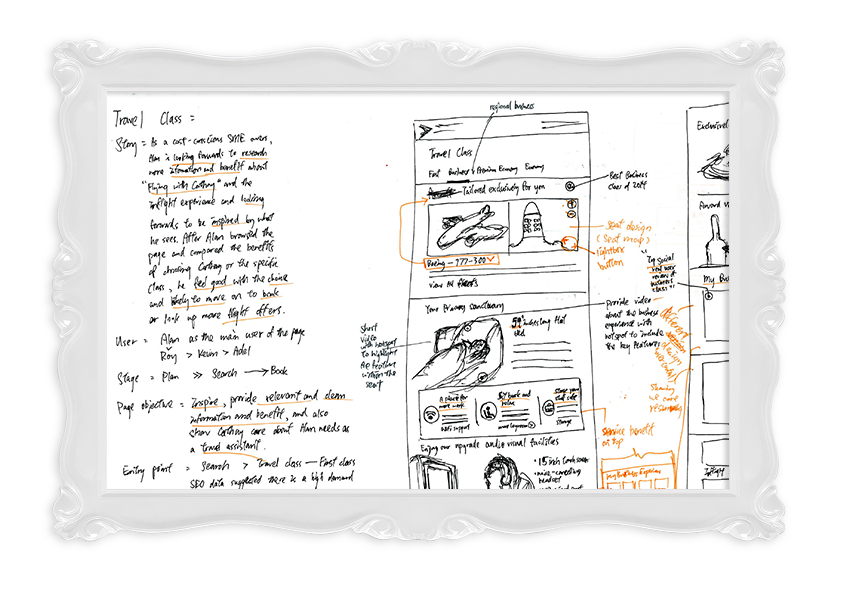 Travel Class =
Story = As a cost-conscious SME owner,
Alan is looking forwards to research
more information and benefit about
"Flying with Cathay" and the
inflight experience and looking
forwards to be inspired by what
he sees. After Alan browsed the
page and compared the benefits
of choosing Cathay or the specific
class, he feel good with the choice
and likely to move on to book
or look up more flight offers.
User = Alan as the main user of the page
Roy > Kevin > Adel
Stage = Plan >> Search → Book
Page objective = Inspire, provide relevant and clean
information and benefit, and also
show Cathay care about Alan needs as
a travel assistant.
Entry point = Search > Travel class — First class
SEO data suggested there is a high demand
regional business
Travel Class
First Business Premium Economy Economy
Tailored exclusively for you
Best Business
class of 201
Boeing - 777-300
View All
Seat design
(Seat map)
lightbox
button
Your Primary sanctuary
Short
video
with hotspot
to highlight
the feature
within the
seat
inches long flat
bed
provide video
about the business
experience with
hotspot to include
the key features
A place for
your work
WiFi support
Sit back and
relax
more legroom
storage
Service benefit
on top
Enjoy our upgrade audio visual facilities
• 15 inch touch screen
• noise-cancelling
headset
Exclusivel
Award w
My Bu
My Business Experience